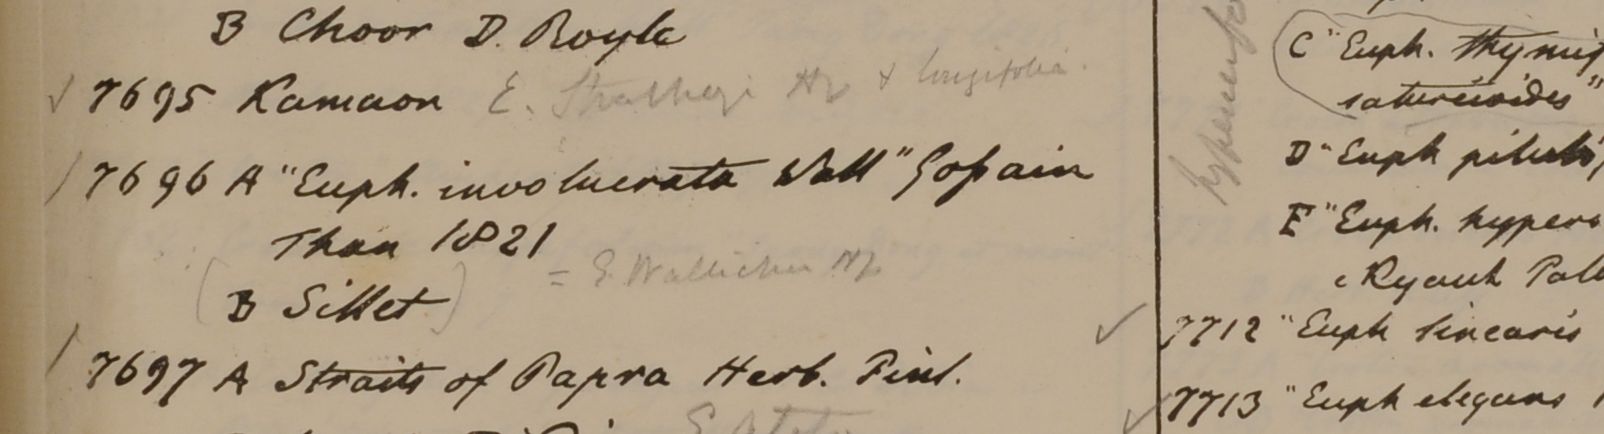 B Choor D. Royle
7695 Kamaon E. Stracheyi Hf & longifolia.
7696 A "Euph. involucrata Wall" Gossain
Than 1821
= E. Wallichii Hf
(B Sillet)
7697 A Straits of Papra Herb. Finl.
C "Euph. thymif
saturéioides"
D "Euph pilul
E "Euph. hyperi
7712 "Euph linearis
7713 "Euph elegans